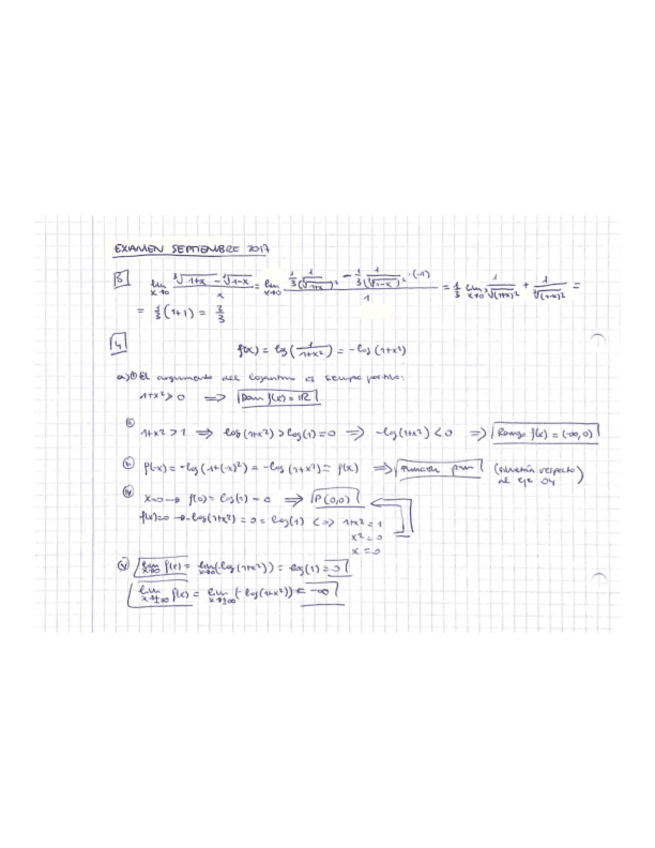 EXAMEN SEPTIEMBRE 2017
3 lim x→0 (∛(1+x) - ∛(1-x))/x = lim x→0 (1/3 · 1/(∛(1+x))² - 1/3 · 1/(∛(1-x))² · (-1))/1 = 1/3 lim x→0 1/∛(1+x)² + 1/∛(1-x)² =
= 1/3 (1+1) = 2/3
4
f(x) = log(1/(1+x²)) = -log(1+x²)
a) i) El argumento del logaritmo es siempre positivo:
1+x² > 0 ⟹ Dom f(x) = ℝ
1+x² > 1 ⟹ log(1+x²) > log(1) = 0 ⟹ -log(1+x²) < 0 ⟹ Rango f(x) = (-∞,0)
f(-x) = -log(1+(-x)²) = -log(1+x²) = f(x) ⟹ Función par (simetría respecto al eje OY)
iv) x=0 → f(0) = log(1) = 0 ⟹ P(0,0)
f(x)=0 → -log(1+x²) = 0 = log(1) <=> 1+x² = 1
x² = 0
x = 0
v) lim x→0 f(x) = lim x→0 (-log(1+x²)) = log(1) = 0
lim x→±∞ f(x) = lim x→±∞ (-log(1+x²)) = -∞